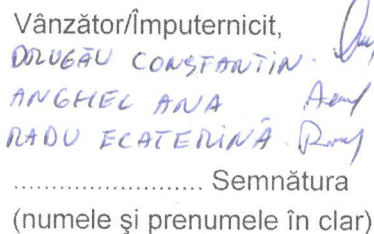 Vânzător/Împuternicit,
DRUGĂU CONSTANTIN.
ANGHEL ANA
RADU ECATERINA.
........................ Semnătura
(numele şi prenumele în clar)